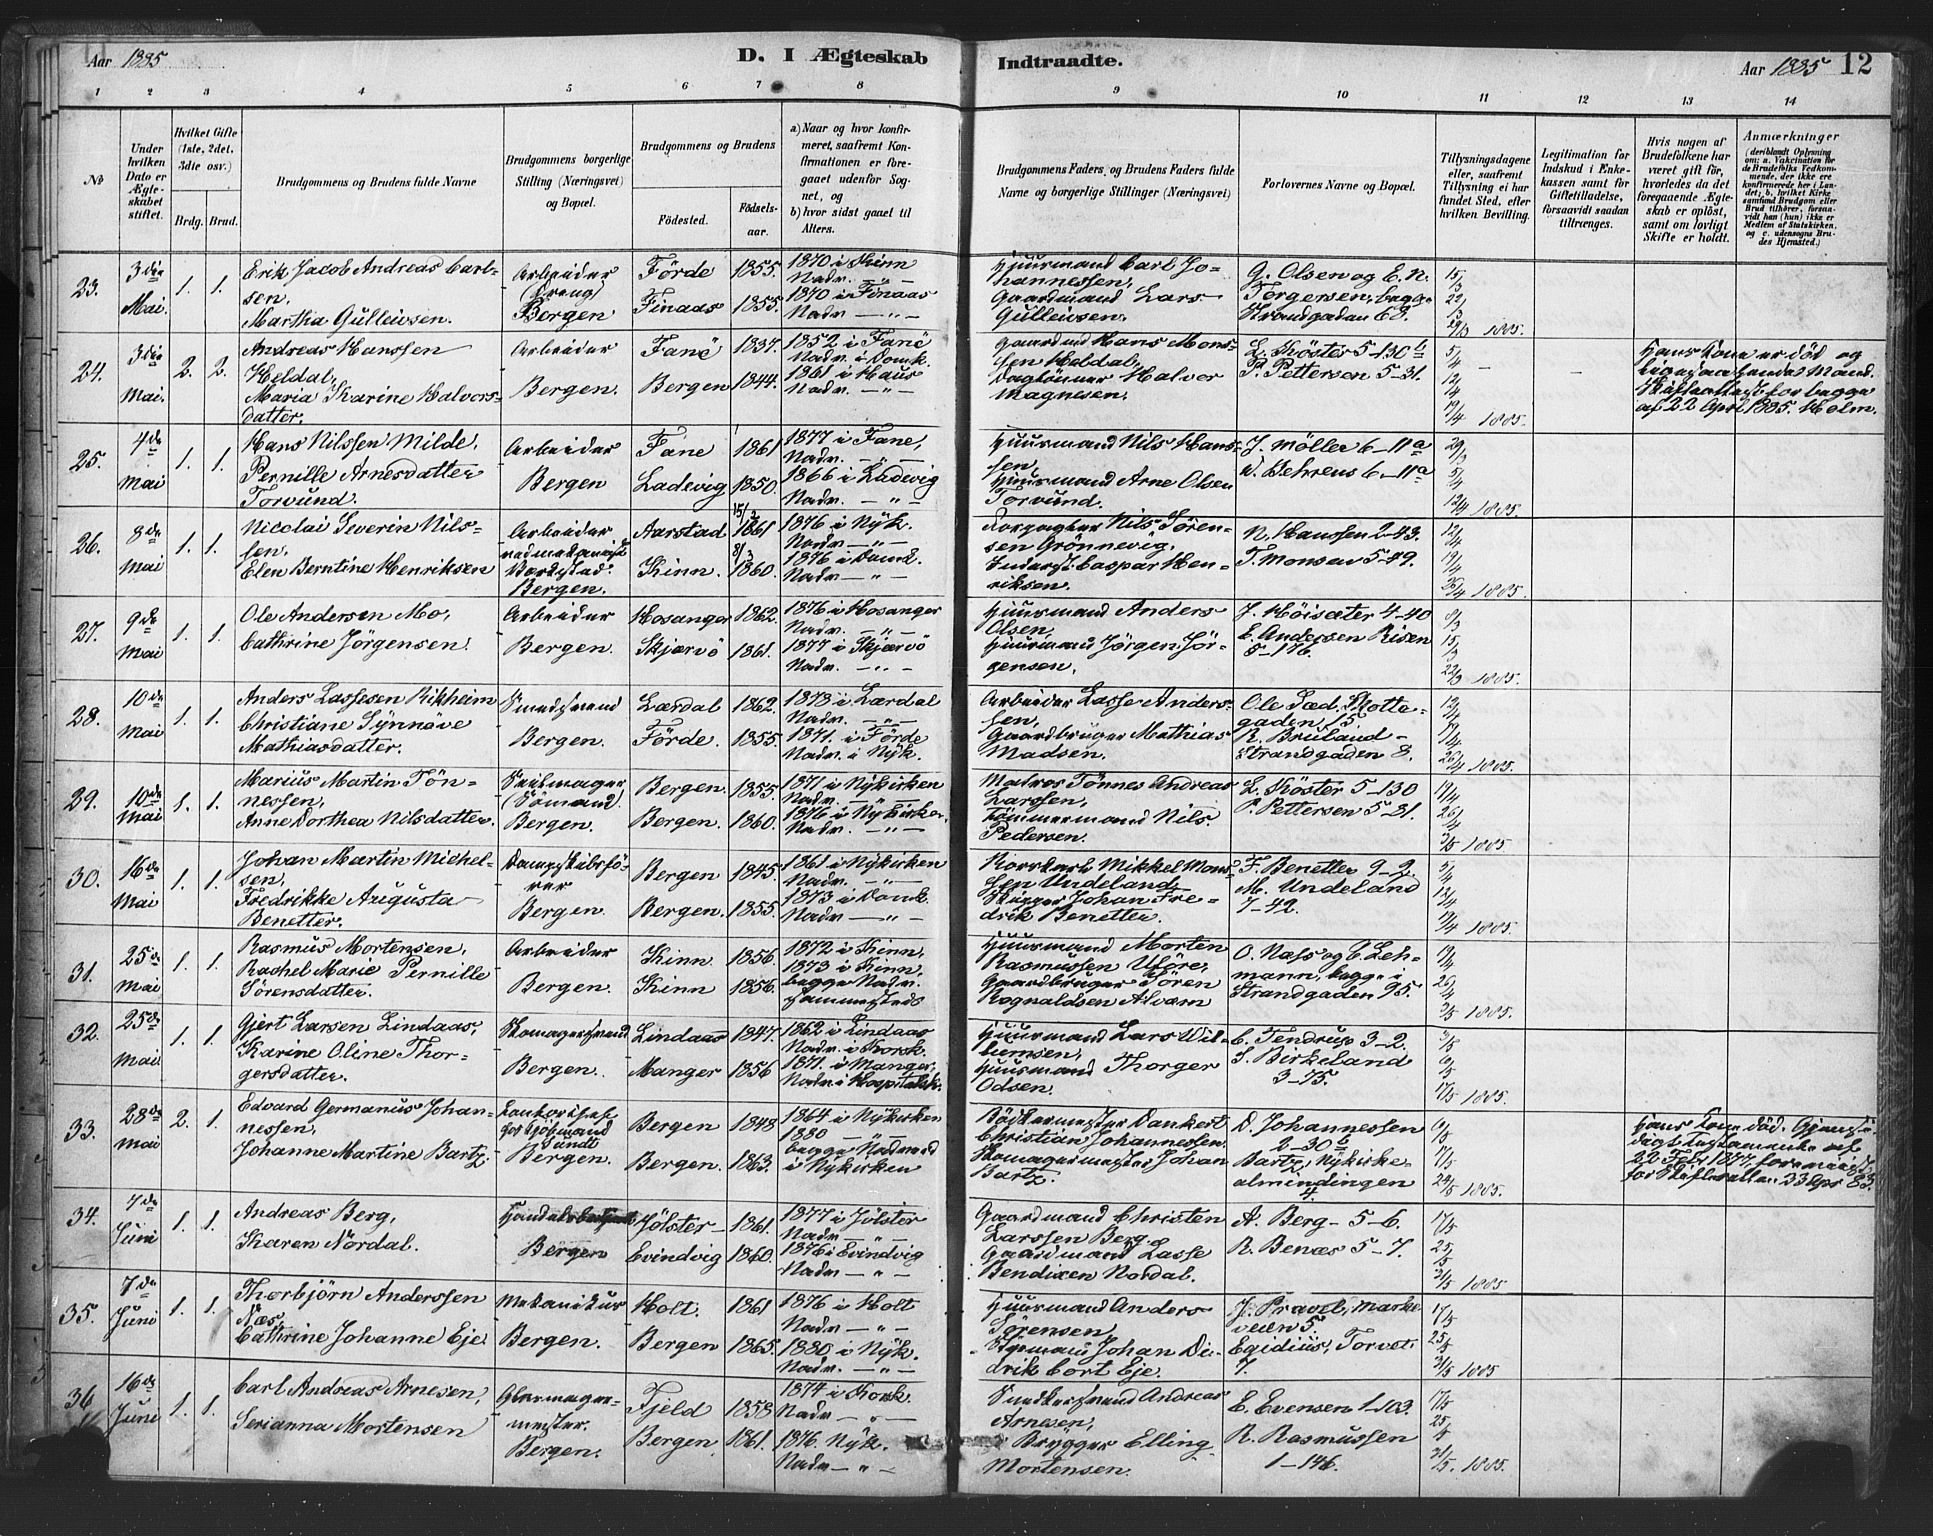 Aar 1885
D. I Ægteskab Indtraadte.
Aar 1885 12
1 2 3 4 5 6 7 8 9 10 11 12 13 14
No
Under hvilken Dato er Ægteskabet stiftet.
Hvilket Gifte (1ste, 2det, 3die osv.)
Brdg. Brud.
Brudgommens og Brudens fulde Navne
Brudgommens borgerlige Stilling (Næringsvei) og Bopæl.
Brudgommens og Brudens
Födested.
Födselsaar.
a) Naar og hvor konfirmeret, saafremt Konfirmationen er foregaaet udenfor Sognet, og
b) hvor sidst gaaet til Alters.
Brudgommens Faders, og Brudens Faders fulde Navne og borgerlige Stillinger (Næringsvei)
Forlovernes Navne og Bopæl.
Tillysningsdagene eller, saafremt Tillysning ei har fundet Sted, efter hvilken Bevilling.
Legitimation for Indskud i Enkekassen samt for Giftetilladelse, forsaavidt saadan tiltrænges.
Hvis nogen af Brudefolkene har været gift för, hvorledes da det foregaaende Ægteskab er oplöst, samt om lovligt Skifte er holdt.
Anmærkninger (deriblandt Oplysning om: a. Vakcination for de Brudefolks Vedkommende, der ikke ere konfirmerede her i Landet; b. hvilket Kirkesamfund Brudgom eller Brud tilhörer, forsaavidt han (hun) ikke er Medlem af Statskirken, og c. udensogns Brudes Hjemsted.)
23. 3die Mai. 1. 1.
Erik Jacob Andreas Carlsen,
Martha Gulleivsen.
Arbeider
Bergen
Förde 1855.
Finaas 1855.
1870 i Kinn
Nadv. — " —
1870 i Finaas
Nadv. — " —
Huusmand Carl Johannessen,
Gaardmand Lars Gulleivsen.
G. Olsen og E. N. Torgersen, begge Strandgaden 68.
15/3 22/3 29/3 1885.
24. 3die Mai. 2. 2.
Andreas Hanssen Heldal,
Maria Karine Halvorsdatter.
Arbeider
Bergen.
Fanö 1837.
Bergen 1844.
1852 i Fanö
Nadv. i Domk.
1861 i Haus
Nadv. — " —
Gaardmd Hans Monssen Heldal,
Daglönner Halvor Magnesen.
L. Köster 5-130 b
P. Pettersen 5-31.
5/4 12/4 19/4 1885.
Hans Kone er död og
Skifteattest for begge
af 22 April 1885. Holm.
25. 4de Mai 1. 1.
Hans Nilssen Milde,
Pernille Arnesdatter Torvund.
Arbeider
Bergen
Fane 1861
Ladevig 1850.
1877 i Fane,
Nadv. — " —
1866 i Ladevig
Nadv. — " —
Huusmand Nils Hanssen,
Huusmand Arne Olsen Torvund.
J. Möller 6-11a
W. Behrens 6-11a
29/3 5/4 12/4 1885.
26. 8de Mai 1. 1.
Nicolai Severin Nilssen,
Elen Berntine Henriksen
Arbeider
Bergen.
Aarstad 15/2 1861
Kinn. 8/3 1860.
1876 i Nyk.
Nadv. — " —
1876 i Domk.
Nadv — " —
Forpagter Nils Sörensen Grönnevig,
Inderst. Caspar Henriksen.
N. Hanssen 2-43.
T. Monsen 5-49.
12/4 19/4 26/4 1885.
27. 9de Mai 1. 1.
Ole Andersen Mo,
Cathrine Jörgensen.
Arbeider
Bergen.
Hosanger 1862.
Skjærvö 1861.
1876 i Hosanger
Nadv. — " —
1877 i Skjærvö
Nadv. — " —
Huusmand Anders Olsen,
Huusmand Jörgen Jörgensen.
J. Höisæter 4-40
E. Andersen Risen 5-176.
8/3 15/3 22/3 1885.
28. 10de Mai 1. 1.
Anders Lassesen Rikheim
Christiane Synnöve Mathiasdatter.
Smedsvend
Bergen.
Lærdal 1862.
Förde. 1855.
1878 i Lærdal
Nadv. — " —
1871. i Förde
Nadv. i Nyk.
Arbeider Lasse Anderssen,
Gaardbruger Mathias Madsen.
Ole Sæd. Skottegaden 15.
R. Bruland - Strandgaden 8.
12/4 19/4 26/4 1885.
29. 10de Mai 1. 1.
Marius Martin Tönnessen,
Anne Dorthea Nilsdatter.
Seilmager
(Sömand)
Bergen.
Bergen. 1855.
Bergen. 1860.
1871 i Nykirken
Nadv. — " —
1876 i Nykirken,
Nadv. — " —
Matros Tönnes Andreas Larssen,
Tömmermand Nils Pedersen.
L. Köster 5-130
P. Pettersen 5-31.
19/4 26/4 3/5 1885.
30. 16de Mai 1. 1.
Johan Martin Michelsen,
Fredrikke Augusta Benetter.
Dampskibsförer
Bergen.
Bergen 1845.
Bergen. 1855.
1861 i Nykirken
Nadv. — " —
1873 i Domk.
Nadv. — " —
Rorskarl Mikkel Monssen Undeland,
Skipper Johan Fredrik Benetter.
F. Benetter 9-2.
M. Undeland 7-42.
5/4 12/4 19/4 1885.
31. 25de Mai 1. 1.
Rasmus Mortensen,
Rachel Marie Pernille Sörensdatter.
Arbeider
Bergen.
Kinn 1856
Kinn 1856.
1872 i Kinn,
1873 i Kinn,
begge Nadv.
Sammesteds
Huusmand Morten Rasmussen Uföre,
Gaardbruger Sören Rognaldsen Alværn
O. Næss og C. Lehmann, begge i Strandgaden 95.
19/4 26/4 3/5 1885.
32. 25de Mai 1. 1.
Gjert Larsen Lindaas,
Karine Oline Thorgersdatter.
Skomagersvend
Bergen.
Lindaas 1847.
Manger 1856
1862 i Lindaas
Nadv. i Korsk.
1871. i Manger,
Nadv. i Hospitalsk.
Huusmand Lars Willumsen,
Huusmand Thorger Odsen.
C. Tendrup 3-2.
S. Birkeland 3-75.
3/5 10/5 17/5 1885.
33. 28de Mai 2. 1.
Edvard Germanus Johannessen,
Johanne Martine Bartz.
Kontorist
hos Kjöbmand Sundt
Bergen.
Bergen 1848
Bergen. 1863.
1864 i Nykirken
1880 — " —
begge Nadverd
i Nykirken
Bödkermester Dankert Christian Johannessen.
Skomagermester Johan Bartz.
D. Johannessen 2-30 b
Bartz, Nykirkealmindingen 4.
10/5 17/5 24/5 1885.
Hans Kone död.
22 Feb. 1877,
34. 7de Juni 1. 1.
Andreas Berg,
Karen Nordal.
Bergen
Jölster 1861.
Evindvig 1860.
1877 i Jölster
Nadv. — " —
1876 i Evindvig
Nadv. — " —
Gaardmand Christen Larssen Berg.
Gaardmand Lasse Bendixen Nordal.
A. Berg - 5-6.
R. Benæs 5-7.
17/5 25/5 31/5 1885.
35. 7de Juni 1. 1.
Thorbjörn Anderssen Næs,
Cathrine Johanne Eje.
Mekanikus
Bergen.
Holt. 1861
Bergen 1865.
1876 i Holt
Nadv. — " —
1880 i Nyk.
Nadv. — " —
Huusmand Anders Sörensen,
Styrmand Johan Didrik Cort Eje.
J. Pravel, Markeveien 5.
Egidius, Torvet 7.
17/5 25/5 31/5 1885
36 16de Juni 1. 1.
Carl Andreas Arnesen,
Serianna Mortensen
Glarmagermester.
Bergen.
Fjeld 1858
Bergen 1861.
1874 i Korsk.
Nadv — " —
1876. Nyk.
Nadv — " —
Andreas Arnesen,
Brygger Elling Mortensen.
E. Evensen 1-103.
R. Rasmussen 1-146.
17/5 25/5 31/5. 1885.